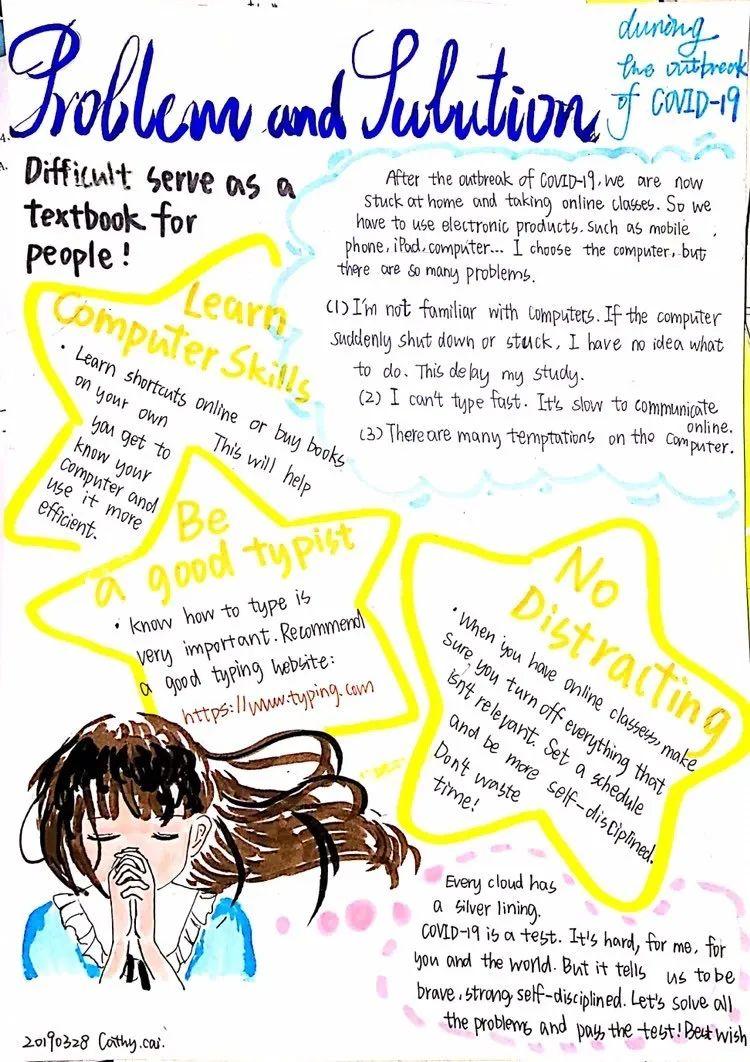 Problem and Sulution
during
the outbreak
of COVID-19
Difficult serve as a
textbook for
people!
After the outbreak of COVID-19, we are now
stuck at home and taking online classes. So we
have to use electronic products. Such as mobile
phone, iPad, computer... I choose the computer, but
there are so many problems.
(1) I'm not familiar with computers. If the computer
suddenly shut down or stuck, I have no idea what
to do. This delay my study.
(2) I can't type fast. It's slow to communicate
online.
(3) There are many temptations on the computer.
Learn
Computer Skills
• Learn shortcuts online or buy books
on your own This will help
you get to
know your
computer and
use it more
efficient.
Be
a good typist
• Know how to type is
very important. Recommend
a good typing website:
https://www.typing.com
No
Distracting
• When you have online classess, make
sure you turn off everything that
isn't relevant. Set a schedule
and be more self-disciplined.
Don't waste
time!
Every cloud has
a silver lining.
COVID-19 is a test. It's hard, for me, for
you and the world. But it tells us to be
brave, strong, self-disciplined. Let's solve all
the problems and pass the test! Best wish
20190328 Cathy.cai.